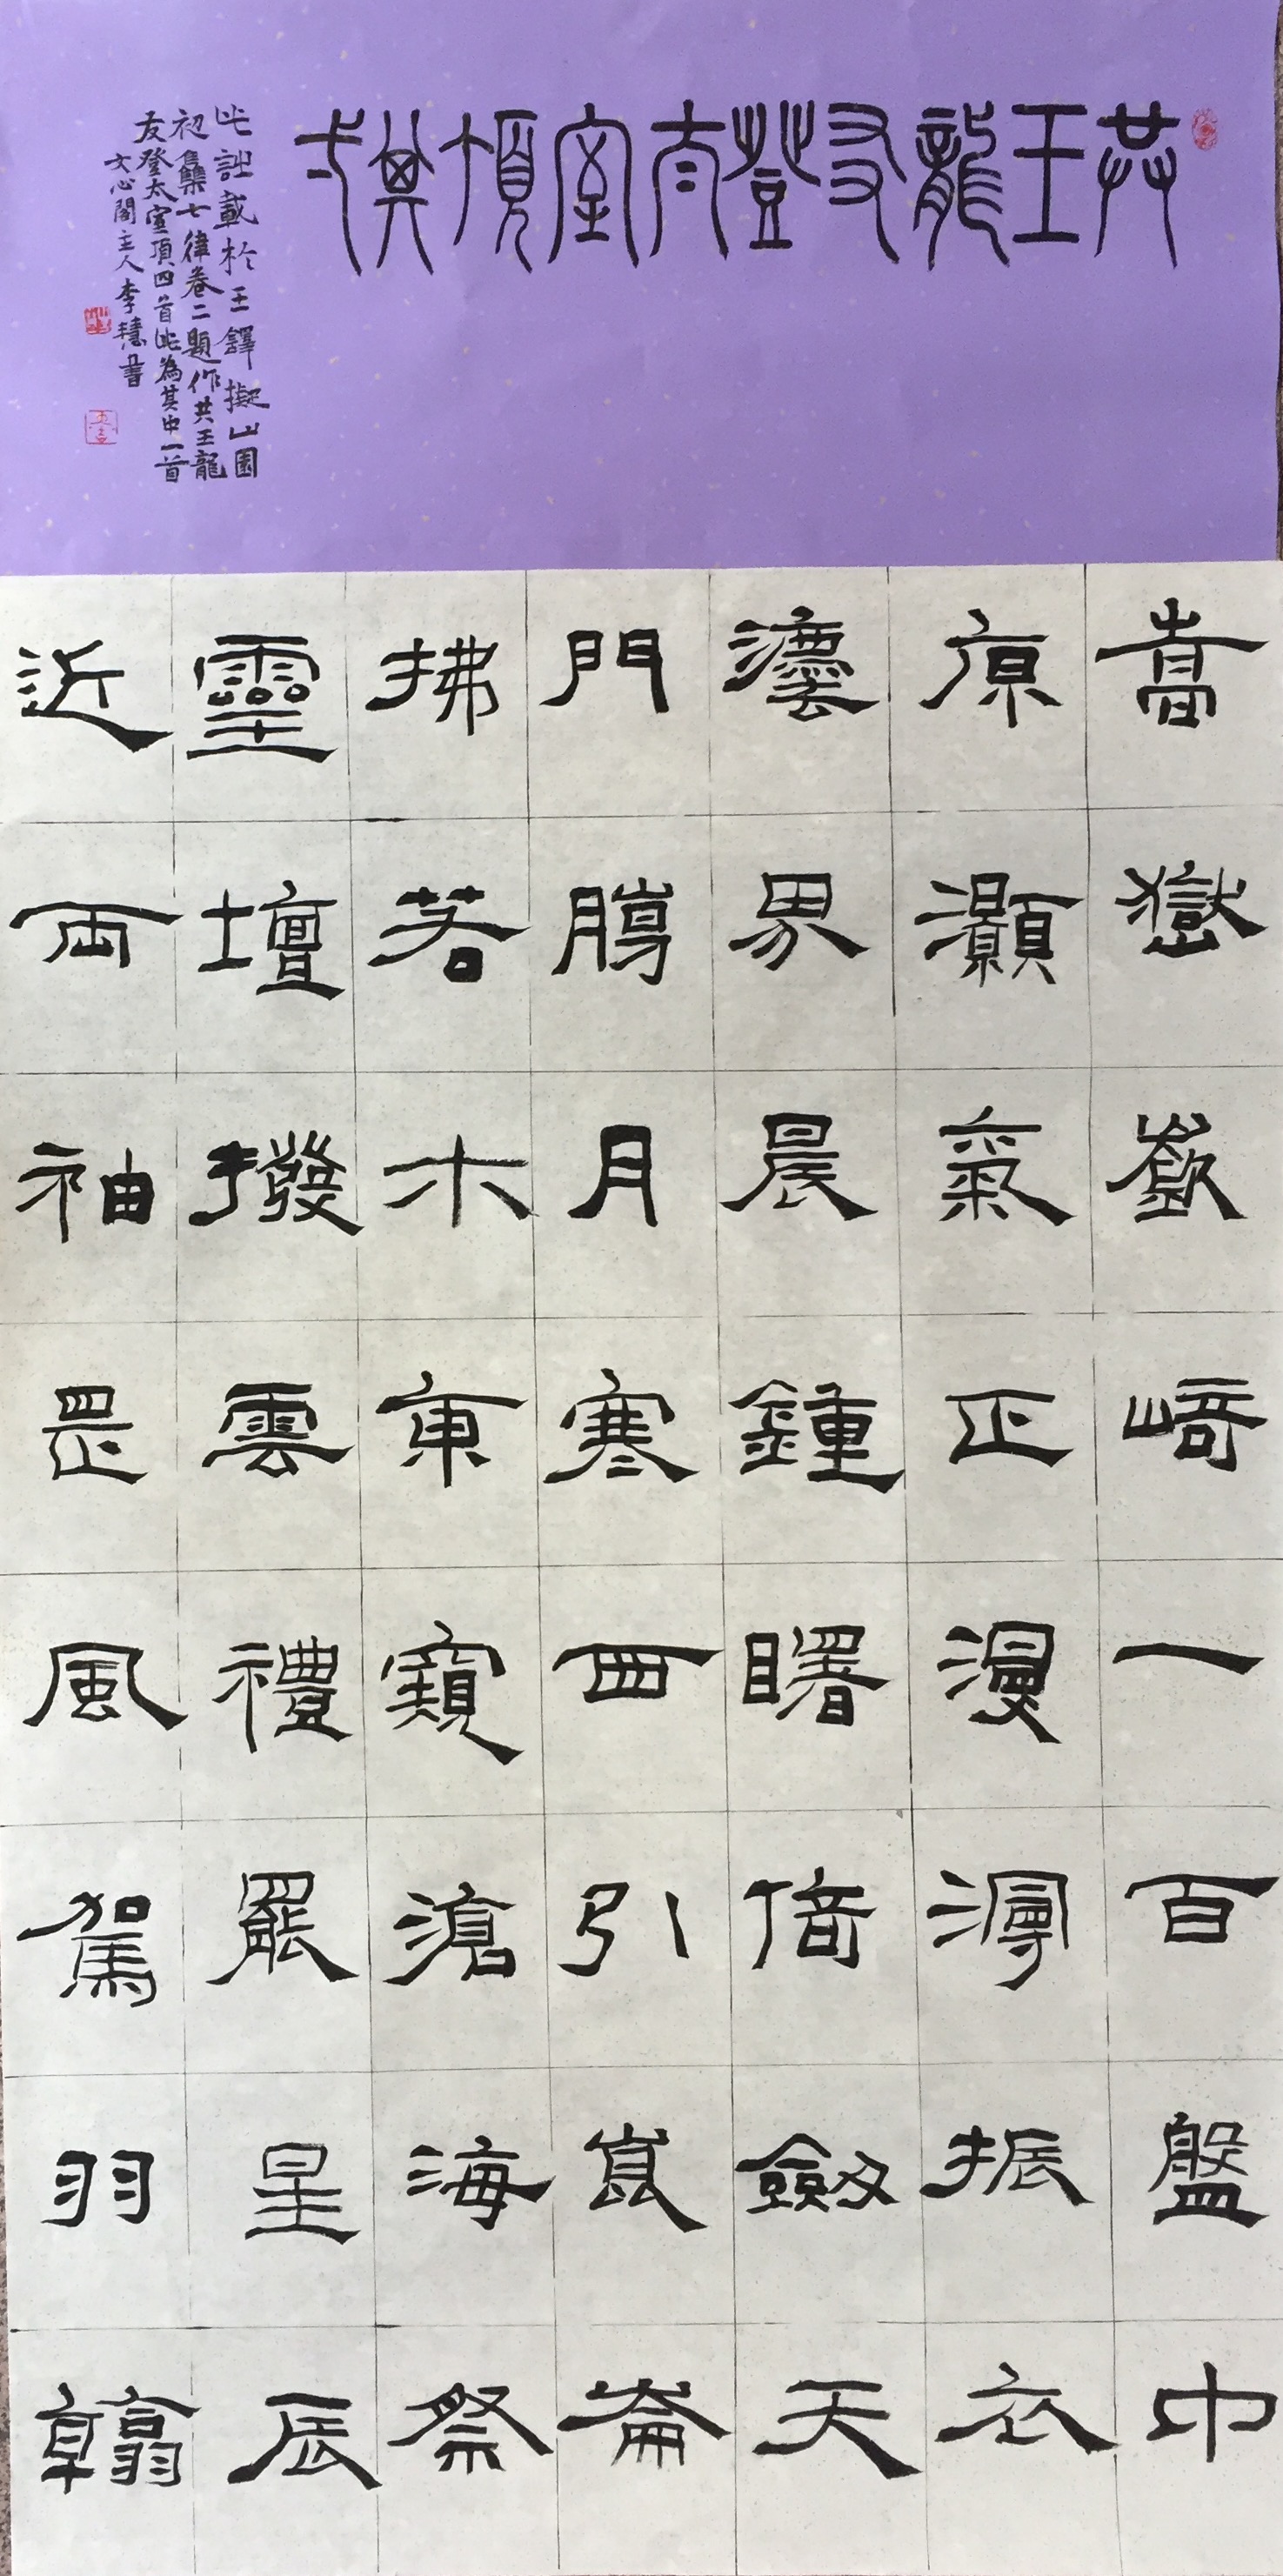 共王龍友登太室頂其弌
此詩載於王鐸擬山園
初集七律卷二題作共王龍
友登太室頂四首此為其中一首
文心閣主人李慧書
嵩嶽嶔崎一百盤中
原灝氣正漫漙振衣
灋界晨鍾曙倚劍天
門月寒西引崑崙
拂若木東窺滄海祭
靈壇撥雲禮罷星辰
近兩袖罡風駕羽翰